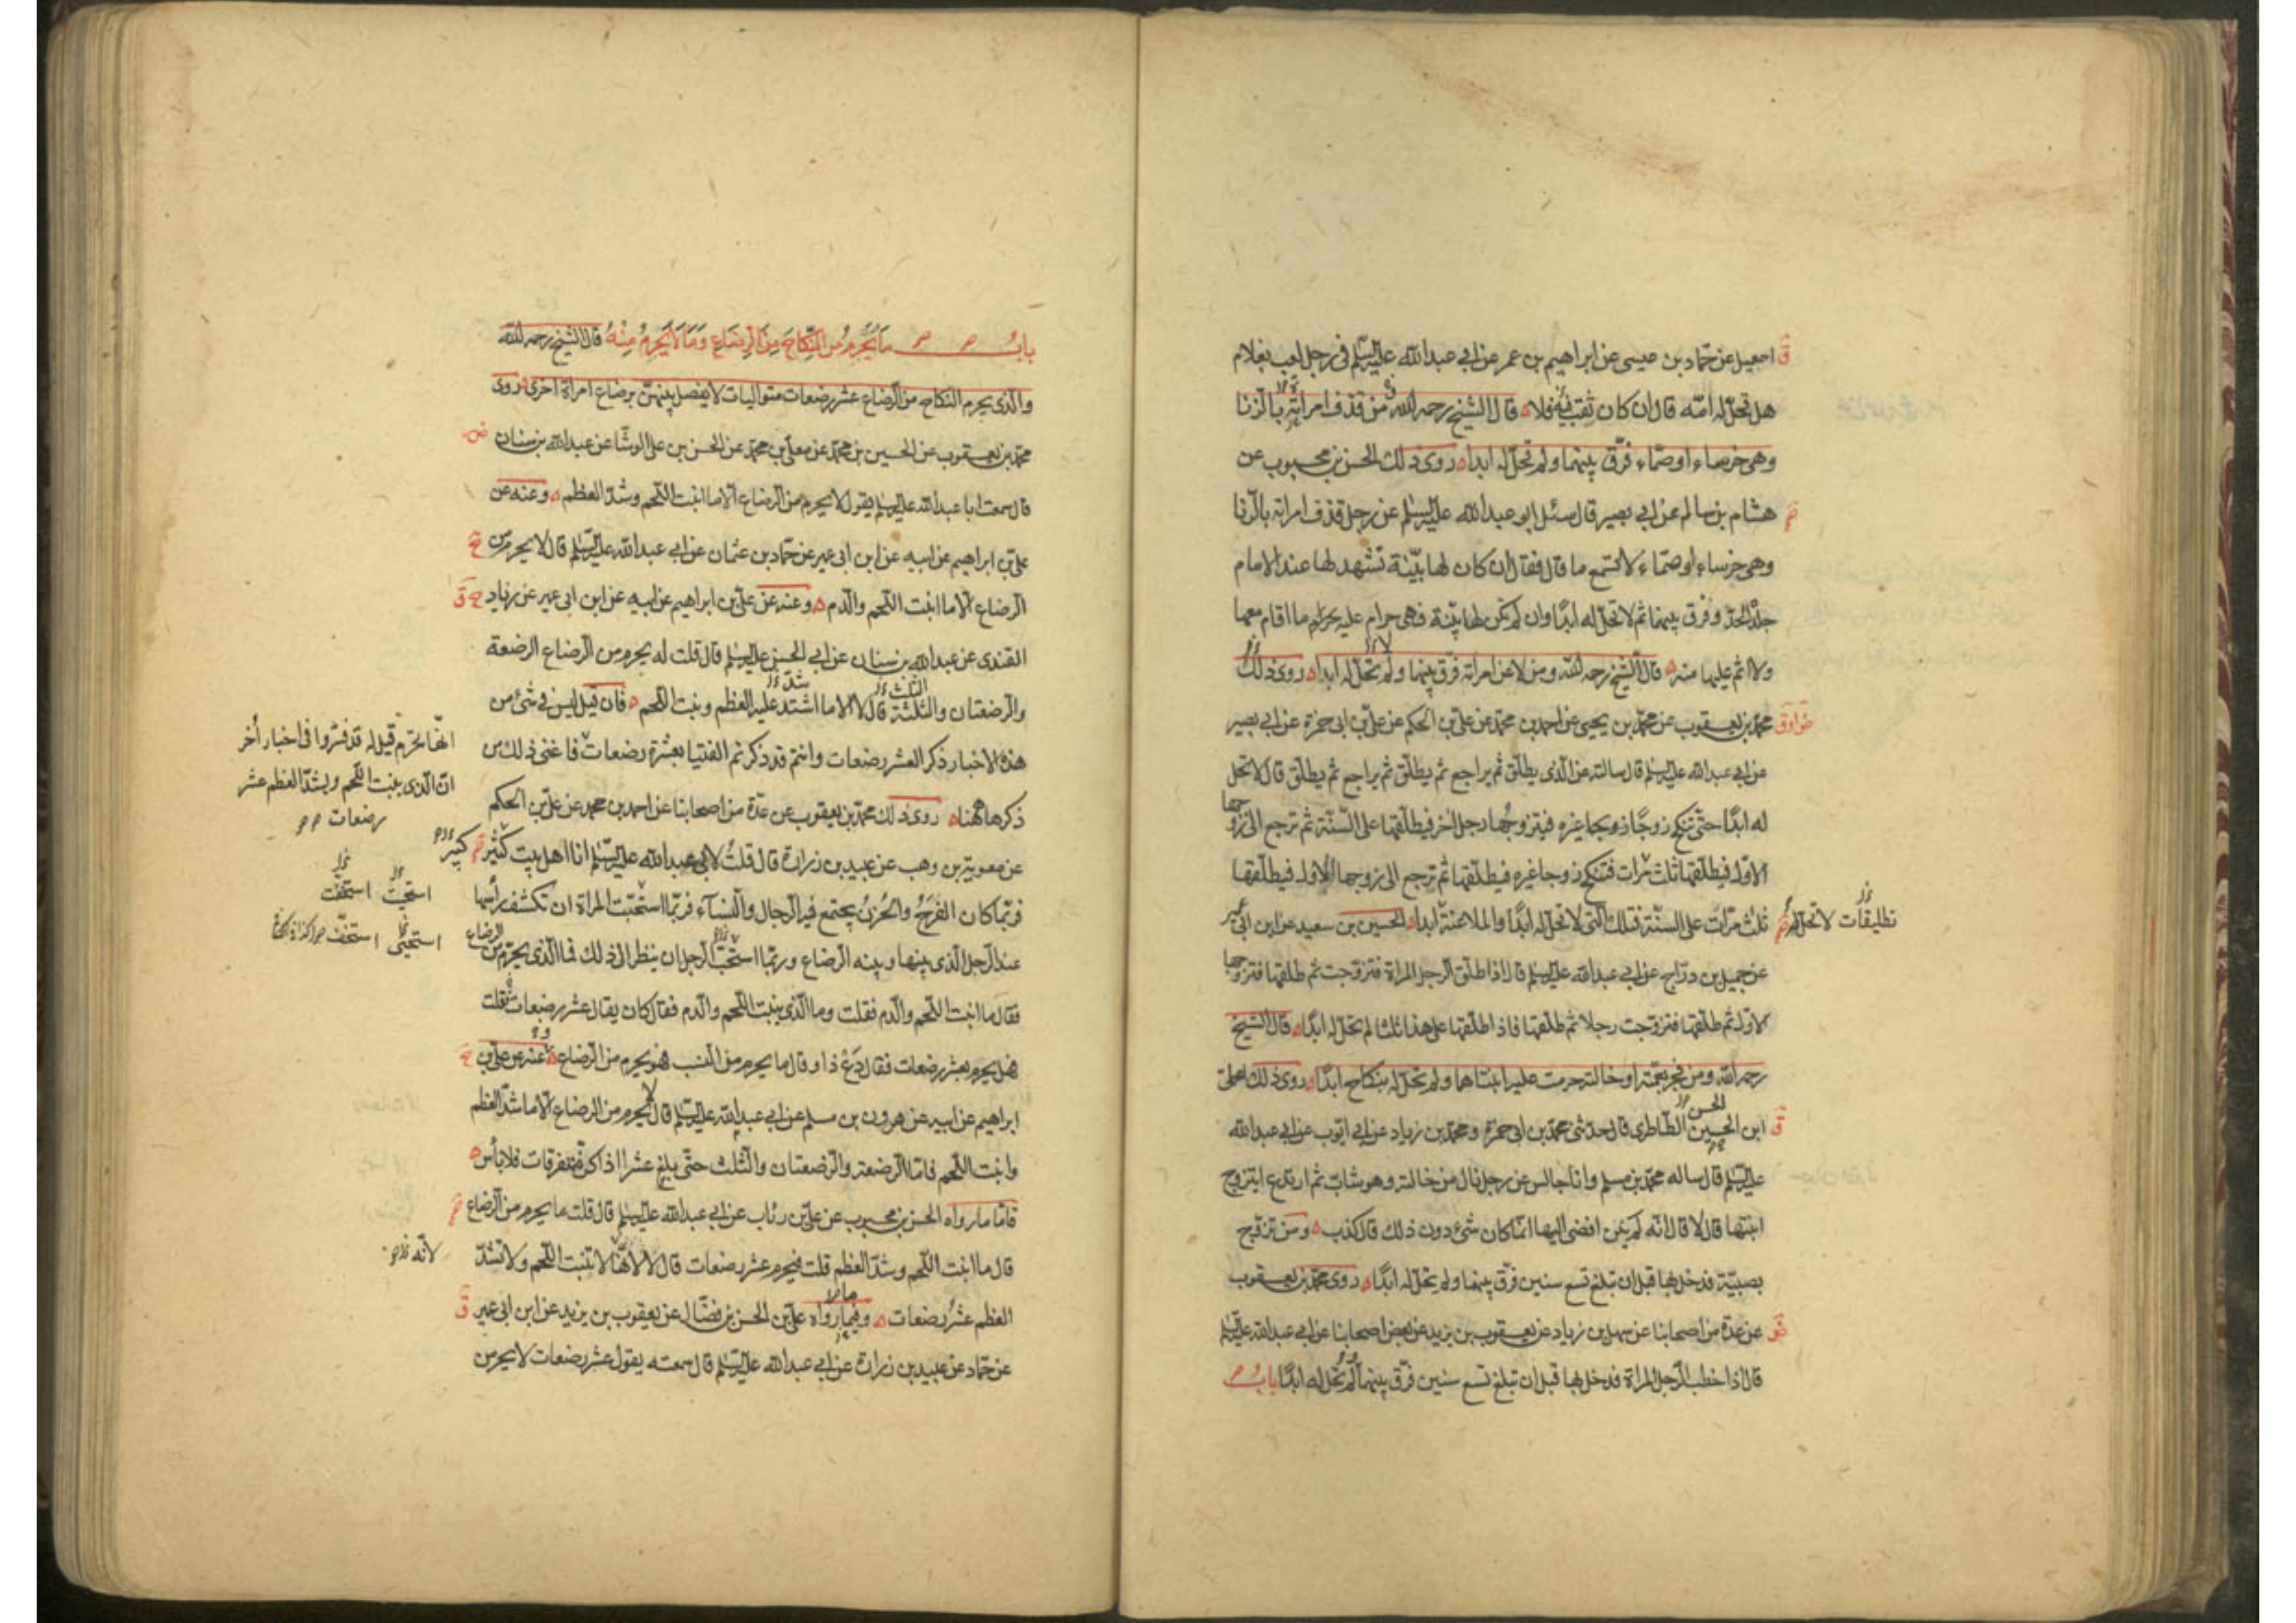 اسمعيل عن حماد بن عيسى عن ابراهيم بن عمر عن ابي عبدالله عليه السلم في رجل لعب بغلام
هل تحل له امه قال ان كان ثقب فيه فلا قال الشيخ رحمه الله من قذف امراته بالزنا
وهي خرساء او صماء فرق بينهما ولم تحل له ابدا روى ذلك الحسن بن محبوب عن
هشام بن سالم عن ابي بصير قال سئل ابو عبدالله عليه السلم عن رجل قذف امراته بالزنا
وهي خرساء او صماء لا تسمع ما قال فقال ان كان لها بينة تشهد لها عند الامام
جلد الحد وفرق بينهما ثم لا تحل له ابدا وان لم تكن لها بينة فهي حرام عليه ما اقام معها
ولا اثم عليها منه قال الشيخ رحمه الله ومن لاعن امراته فرق بينهما ولم تحل له ابدا روى ذلك
محمد بن يعقوب عن محمد بن يحيى عن احمد بن محمد عن علي بن الحكم عن علي بن ابي حمزة عن ابي بصير
عن ابي عبد الله عليه السلم قال سالته عن الذي يطلق ثم يراجع ثم يطلق ثم يراجع ثم يطلق قال لا تحل
له ابدا حتى تنكح زوجا غيره فيتزوجها رجل اخر فيطلقها على السنة ثم ترجع الى زوجها
الاول فيطلقها ثلث مرات فتنكح زوجا غيره فيطلقها ثم ترجع الى زوجها الاول فيطلقها
ثلث مرات على السنة فتلك التي لا تحل له ابدا والملاعنة ابدا الحسين بن سعيد عن ابن ابي عمير
تطليقات لا تحل له
عن جميل بن دراج عن ابي عبدالله عليه السلم قال اذا طلق الرجل المراة فتزوجت ثم طلقها فتزوجها
الاول ثم طلقها فتزوجت رجلا ثم طلقها فاذا طلقها على هذا ثلثا لم تحل له ابدا قال الشيخ
رحمه الله ومن فجر بعمته او خالته حرمت عليه ابنتاهما ولم تحل له بنكاح ابدا روى ذلك علي
ابن الحسين الطاطري قال حدثني محمد بن ابي حمزة ومحمد بن زياد عن ابي ايوب عن ابي عبدالله
الحسن
عليه السلم قال ساله محمد بن مسلم وانا جالس عن رجل نال من خالته وهو شاب ثم ارتدع ايتزوج
ابنتها قال لا قال انه لم يكن افضى اليها انما كان شئ دون ذلك قال كذب ومن تزوج
بصبية فدخل بها قبل ان تبلغ تسع سنين فرق بينهما ولم تحل له ابدا روى محمد بن يعقوب
عن عدة من اصحابنا عن سهل بن زياد عن يعقوب بن يزيد عن بعض اصحابنا عن ابي عبدالله عليه السلم
قال اذا خطب الرجل المراة فدخل بها قبل ان تبلغ تسع سنين فرق بينهما ولم تحل له ابدا باب
باب ما يحرم من النكاح من الرضاع وما لا يحرم منه قال الشيخ رحمه الله
والذي يحرم النكاح من الرضاع عشر رضعات متواليات لا يفصل بينهن برضاع امراة اخرى روى
محمد بن يعقوب عن الحسين بن محمد عن معلى بن محمد عن الحسن بن علي الوشا عن عبدالله بن سنان
قال سمعت ابا عبدالله عليه السلم يقول لا يحرم من الرضاع الا ما انبت اللحم وشد العظم وعنه عن
علي بن ابراهيم عن ابيه عن ابن ابي عمير عن حماد بن عثمان عن ابي عبدالله عليه السلم قال لا يحرم من
الرضاع الا ما انبت اللحم والدم وعنه عن علي بن ابراهيم عن ابيه عن ابن ابي عمير عن زياد
القندي عن عبدالله بن سنان عن ابي الحسن عليه السلم قال قلت له يحرم من الرضاع الرضعة
والرضعتان والثلثة قال لا الا ما اشتد عليه العظم ونبت اللحم فان قيل ليس في شئ من
هذه الاخبار ذكر العشر رضعات وانتم قد ذكرتم الفتيا بعشرة رضعات فاغنى ذلك من
انها تحرم قيل له قد فسروا في اخبار أخر
ان الذي ينبت اللحم ويشد العظم عشر
رضعات
ذكرها ههنا روى ذلك محمد بن يعقوب عن عدة من اصحابنا عن احمد بن محمد عن علي بن الحكم
عن معوية بن وهب عن عبيد بن زرارة قال قلت لابي عبدالله عليه السلم انا اهل بيت كثير
كبير
فربما كان الفرح والحزن يجتمع فيه الرجال والنساء فربما استحيت المراة ان تكشف رأسها
استحيت استخفت
عند الرجل الذي بينها وبينه الرضاع وربما استخف الرجل ان ينظر الى ذلك فما الذي يحرم من الرضاع
استحيى استخف
فقال ما انبت اللحم والدم فقلت وما الذي ينبت اللحم والدم فقال كان يقال عشر رضعات فقلت
هل يحرم بعشر رضعات فقال دع ذا وقال ما يحرم من النسب فهو يحرم من الرضاع وعنه عن علي بن
ابراهيم عن ابيه عن هرون بن مسلم عن ابي عبدالله عليه السلم قال لا يحرم من الرضاع الا ما شد العظم
وانبت اللحم فاما الرضعة والرضعتان والثلث حتى بلغ عشرا اذا كن متفرقات فلا بأس
فاما ما رواه الحسن بن محبوب عن علي بن رئاب عن ابي عبدالله عليه السلم قال قلت ما يحرم من الرضاع
قال ما انبت اللحم وشد العظم قلت فيحرم عشر رضعات قال لا لانها لا تنبت اللحم ولا تشد
لانه
العظم عشر رضعات وفيما رواه علي بن الحسن بن فضال عن يعقوب بن يزيد عن ابن ابي عمير
عن حماد عن عبيد بن زرارة عن ابي عبدالله عليه السلم قال سمعته يقول عشر رضعات لا يحرمن